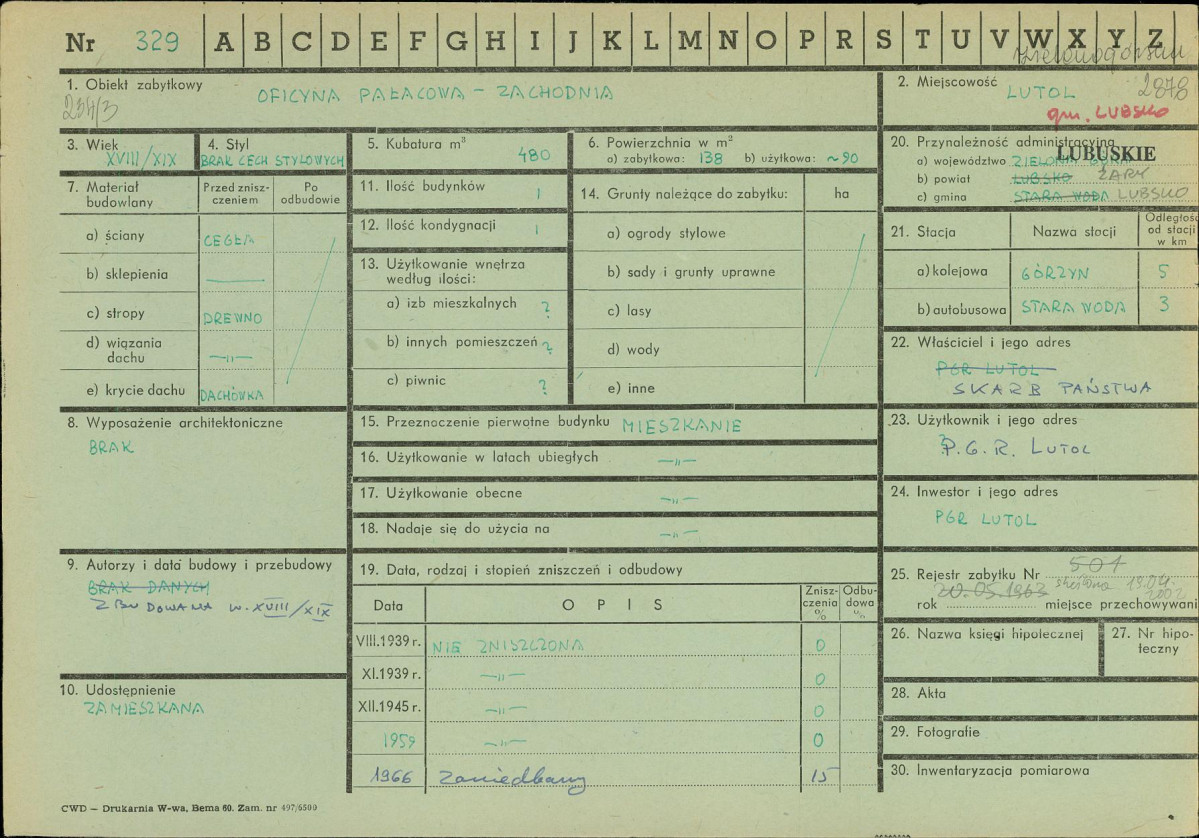 Nr 329 A B C D E F G H I J K L M N O P R S T U V W X Y Z
1. Obiekt zabytkowy
234/3
OFICYNA PAŁACOWA – ZACHODNIA
2. Miejscowość 2878
LUTOL
gm. LUBSKO
3. Wiek
XVIII/XIX
4. Styl
BRAK CECH STYLOWYCH
5. Kubatura m³
480
6. Powierzchnia w m²
a) zabytkowa: 138 b) użytkowa: ~90
20. Przynależność administracyjna
a) województwo ZIELONA GÓRA LUBUSKIE
b) powiat LUBSKO ŻARY
c) gmina STARA WODA LUBSKO
7. Materiał budowlany
Przed zniszczeniem
Po odbudowie
a) ściany CEGŁA
b) sklepienia —
c) stropy DREWNO
d) wiązania dachu —„—
e) krycie dachu DACHÓWKA
11. Ilość budynków 1
12. Ilość kondygnacji 1
13. Użytkowanie wnętrza według ilości:
a) izb mieszkalnych ?
b) innych pomieszczeń ?
c) piwnic ?
14. Grunty należące do zabytku: ha
a) ogrody stylowe
b) sady i grunty uprawne
c) lasy
d) wody
e) inne
21. Stacja Nazwa stacji Odległość od stacji w km
a) kolejowa GÓRZYN 5
b) autobusowa STARA WODA 3
22. Właściciel i jego adres
PGR LUTOL
SKARB PAŃSTWA
8. Wyposażenie architektoniczne
BRAK
15. Przeznaczenie pierwotne budynku MIESZKANIE
16. Użytkowanie w latach ubiegłych —„—
17. Użytkowanie obecne —„—
18. Nadaje się do użycia na —„—
23. Użytkownik i jego adres
P.G.R. LUTOL
24. Inwestor i jego adres
PGR LUTOL
9. Autorzy i data budowy i przebudowy
BRAK DANYCH
ZBUDOWANA W. XVIII/XIX
10. Udostępnienie
ZAMIESZKANA
19. Data, rodzaj i stopień zniszczeń i odbudowy
Data OPIS Zniszczenia % Odbudowa %
VIII.1939 r. NIE ZNISZCZONA 0
XI.1939 r. —„— 0
XII.1945 r. —„— 0
1959 —„— 0
1966 zaniedbany 15
25. Rejestr zabytku Nr 501
20.05.1963 skreślono 19.04.2002
rok miejsce przechowywani
26. Nazwa księgi hipotecznej
27. Nr hipoteczny
28. Akta
29. Fotografie
30. Inwentaryzacja pomiarowa
CWD – Drukarnia W-wa, Bema 60. Zam. nr 497/6500